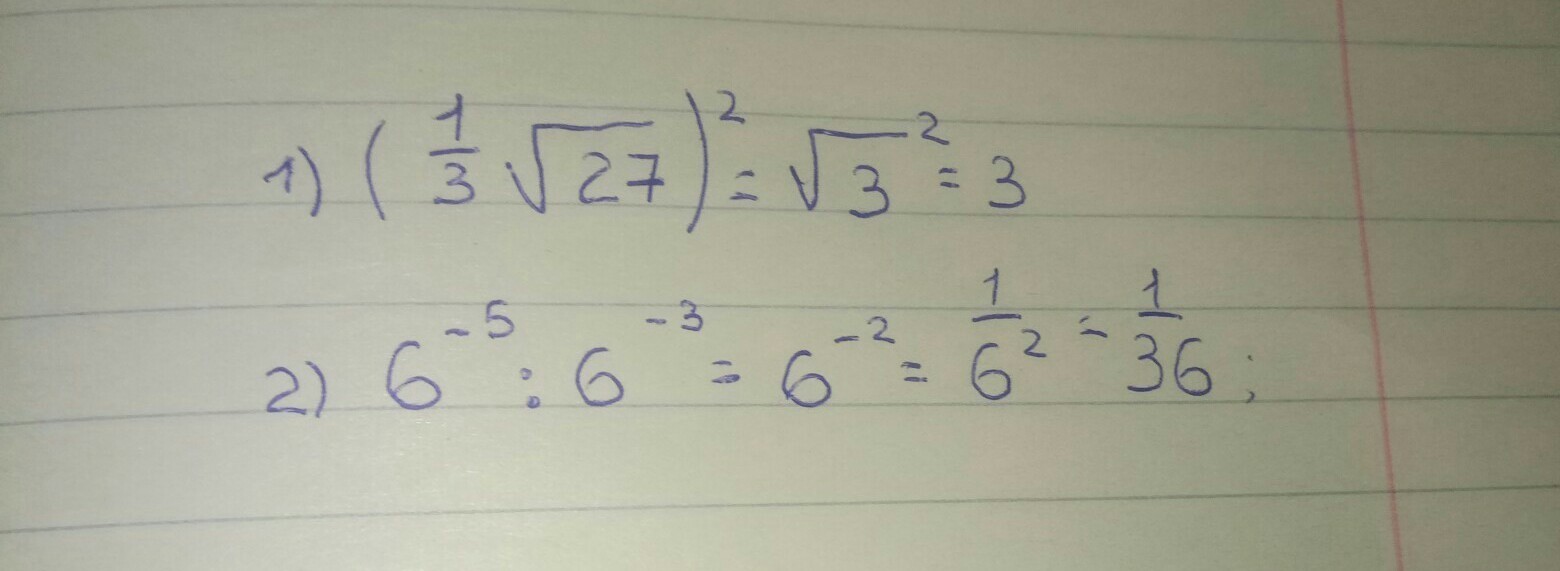 1) (1/3 √27)² = √3² = 3
2) 6⁻⁵ : 6⁻³ = 6⁻² = 1/6² = 1/36 ;